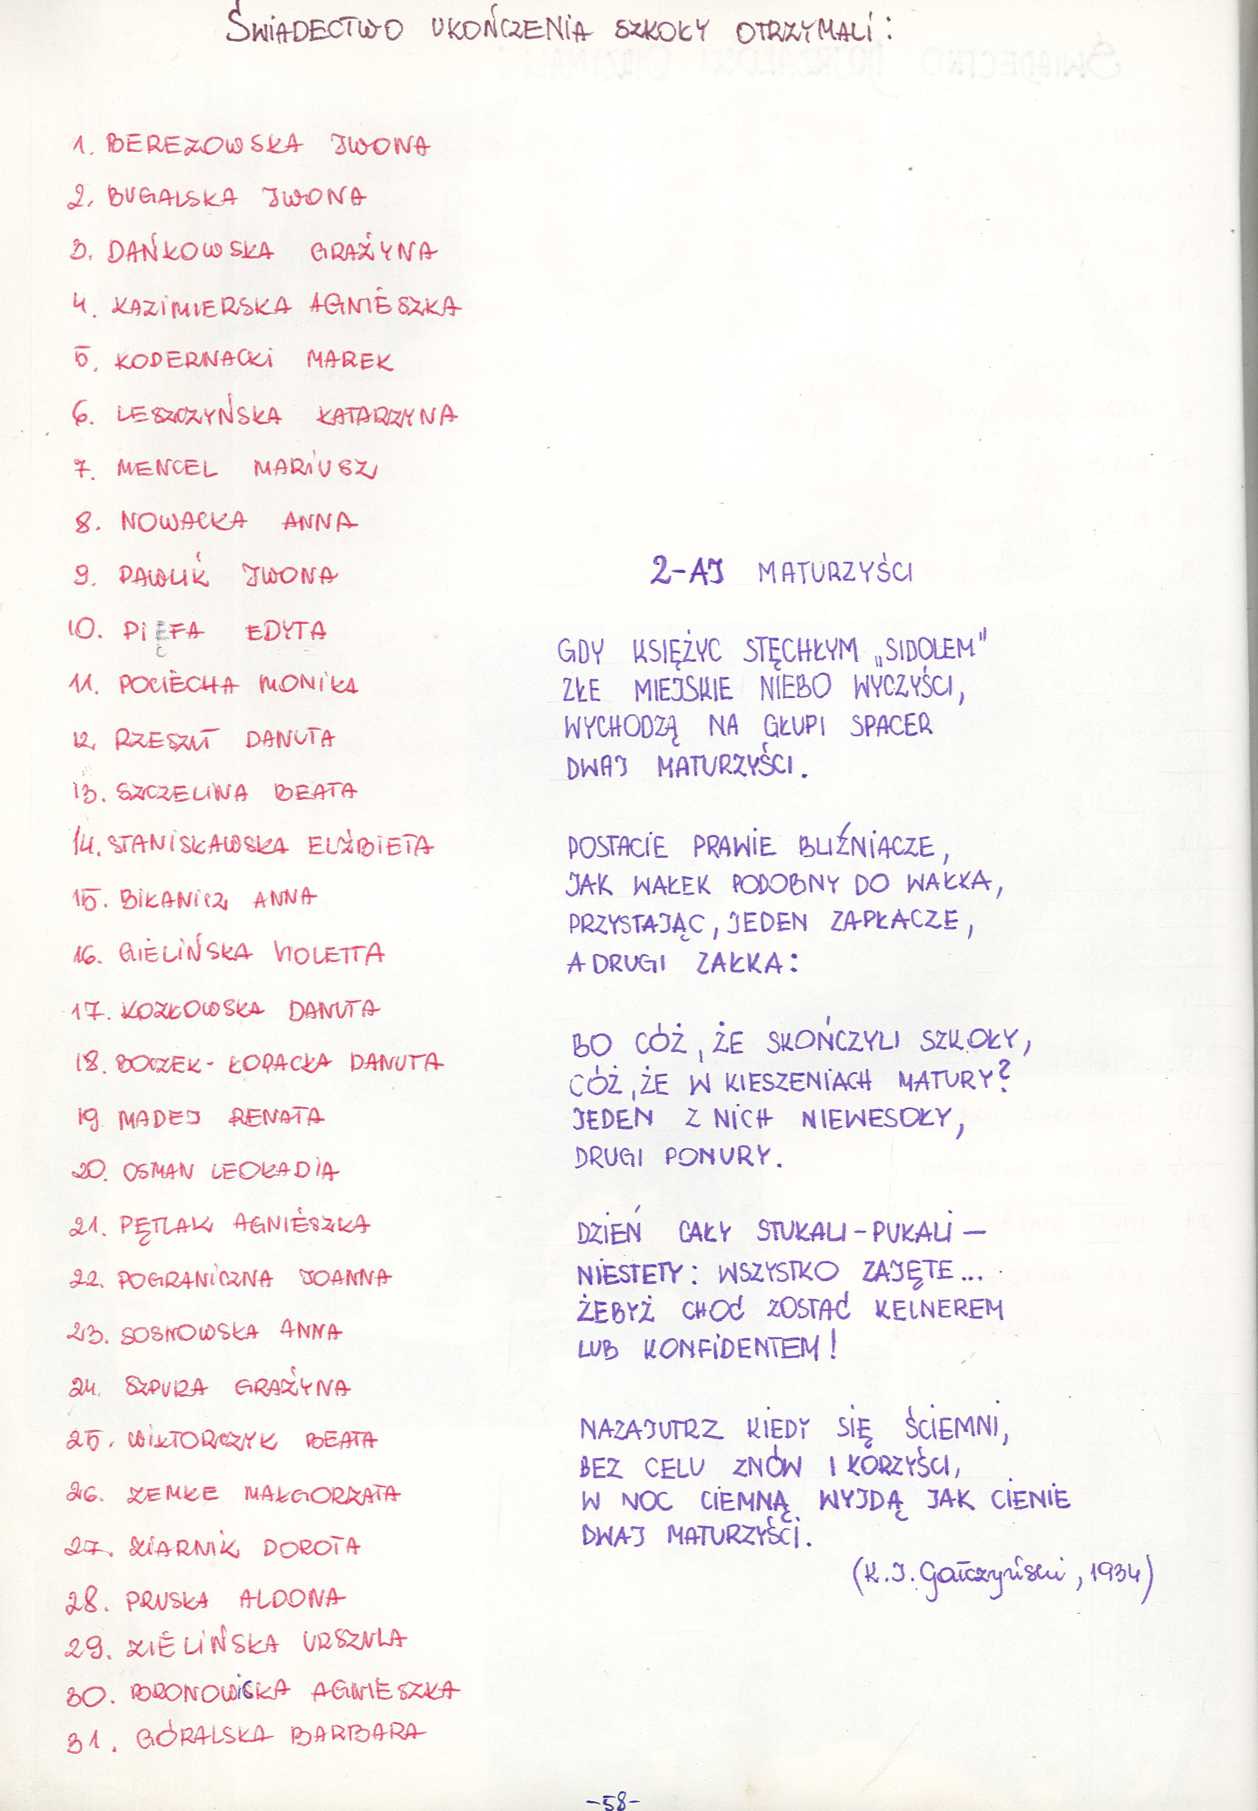 ŚWIADECTWO UKOŃCZENIA SZKOŁY OTRZYMALI:
1. BEREZOWSKA IWONA
2. BUGALSKA IWONA
3. DAŃKOWSKA GRAŻYNA
4. KAZIMIERSKA AGNIESZKA
5. KODERNACKI MAREK
6. LESZCZYŃSKA KATARZYNA
7. MENCEL MARIUSZ
8. NOWACKA ANNA
9. PAWLIK IWONA
10. PIĘTA EDYTA
11. POCIECHA MONIKA
12. RZESZUT DANUTA
13. SZCZELINA BEATA
14. STANISŁAWSKA ELŻBIETA
15. BIŁANICZ ANNA
16. GIELIŃSKA VIOLETTA
17. KOZŁOWSKA DANUTA
18. BOCZEK-ŁOPACKA DANUTA
19. MADEJ RENATA
20. OSMAN LEOKADIA
21. PĘTLAK AGNIESZKA
22. POGRANICZNA JOANNA
23. SOSNOWSKA ANNA
24. SZPURA GRAŻYNA
25. WIKTORCZYK BEATA
26. ZEMKE MAŁGORZATA
27. ZIARNIK DOROTA
28. PRUSKA ALDONA
29. ZIELIŃSKA URSZULA
30. BRONOWISKA AGNIESZKA
31. GÓRALSKA BARBARA
2-AJ MATURZYŚCI
GDY KSIĘŻYC STĘCHŁYM „SIDOLEM"
ZŁE MIEJSKIE NIEBO WYCZYŚCI,
WYCHODZĄ NA GŁUPI SPACER
DWAJ MATURZYŚCI.
POSTACIE PRAWIE BLIŹNIACZE,
JAK WAŁEK PODOBNY DO WAŁKA,
PRZYSTAJĄC, JEDEN ZAPŁACZE,
A DRUGI ZAŁKA:
BO CÓŻ, ŻE SKOŃCZYLI SZKOŁY,
CÓŻ, ŻE W KIESZENIACH MATURY?
JEDEN Z NICH NIEWESOŁY,
DRUGI PONURY.
DZIEŃ CAŁY STUKALI-PUKALI —
NIESTETY: WSZYSTKO ZAJĘTE...
ŻEBYŻ CHOĆ ZOSTAĆ KELNEREM
LUB KONFIDENTEM!
NAZAJUTRZ KIEDY SIĘ ŚCIEMNI,
BEZ CELU ZNÓW I KORZYŚCI,
W NOC CIEMNĄ WYJDĄ JAK CIENIE
DWAJ MATURZYŚCI.
(K.I. Gałczyński, 1934)
-58-